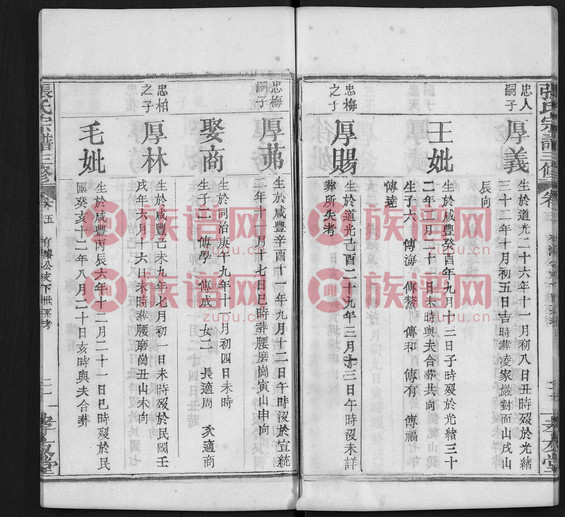 張氏宗譜三修
卷
忠人嗣子
厚義
生於道光二十六年十一月初八日丑時歿於光緒
三十二年十月初五日吉時葬凌家巖對面山戌山
辰向
王妣
生於咸豐癸丑年九月十三日子時歿於光緒三十
二年三月二十日未時與夫合葬共向
生子六 傳海 傳 傳和 傳有 傳福
傳逵
忠梅之子
厚賜
生於道光己酉二十九年三月十三日午時沒未詳
葬所失考
忠梅嗣子
厚茀
生於咸豐辛酉十一年九月十二日午時沒於宣統
二年十一月十七日巳時葬腰磨崗寅山申向
娶商
生於同治庚午九年十一月初四日未時
生子二 傳學 傳成 女二 長適周 次適商
忠柏之子
厚林
生於咸豐己未九年七月初一日未時歿於民國壬
戌年六月十六日未時葬腰磨崗丑山未向
毛妣
生於咸豐丙辰六年十二月二十一日巳時歿於民
國癸亥十二年八月二十日亥時與夫合葬
張氏宗譜三修
卷五
族谱网
zupu.cn